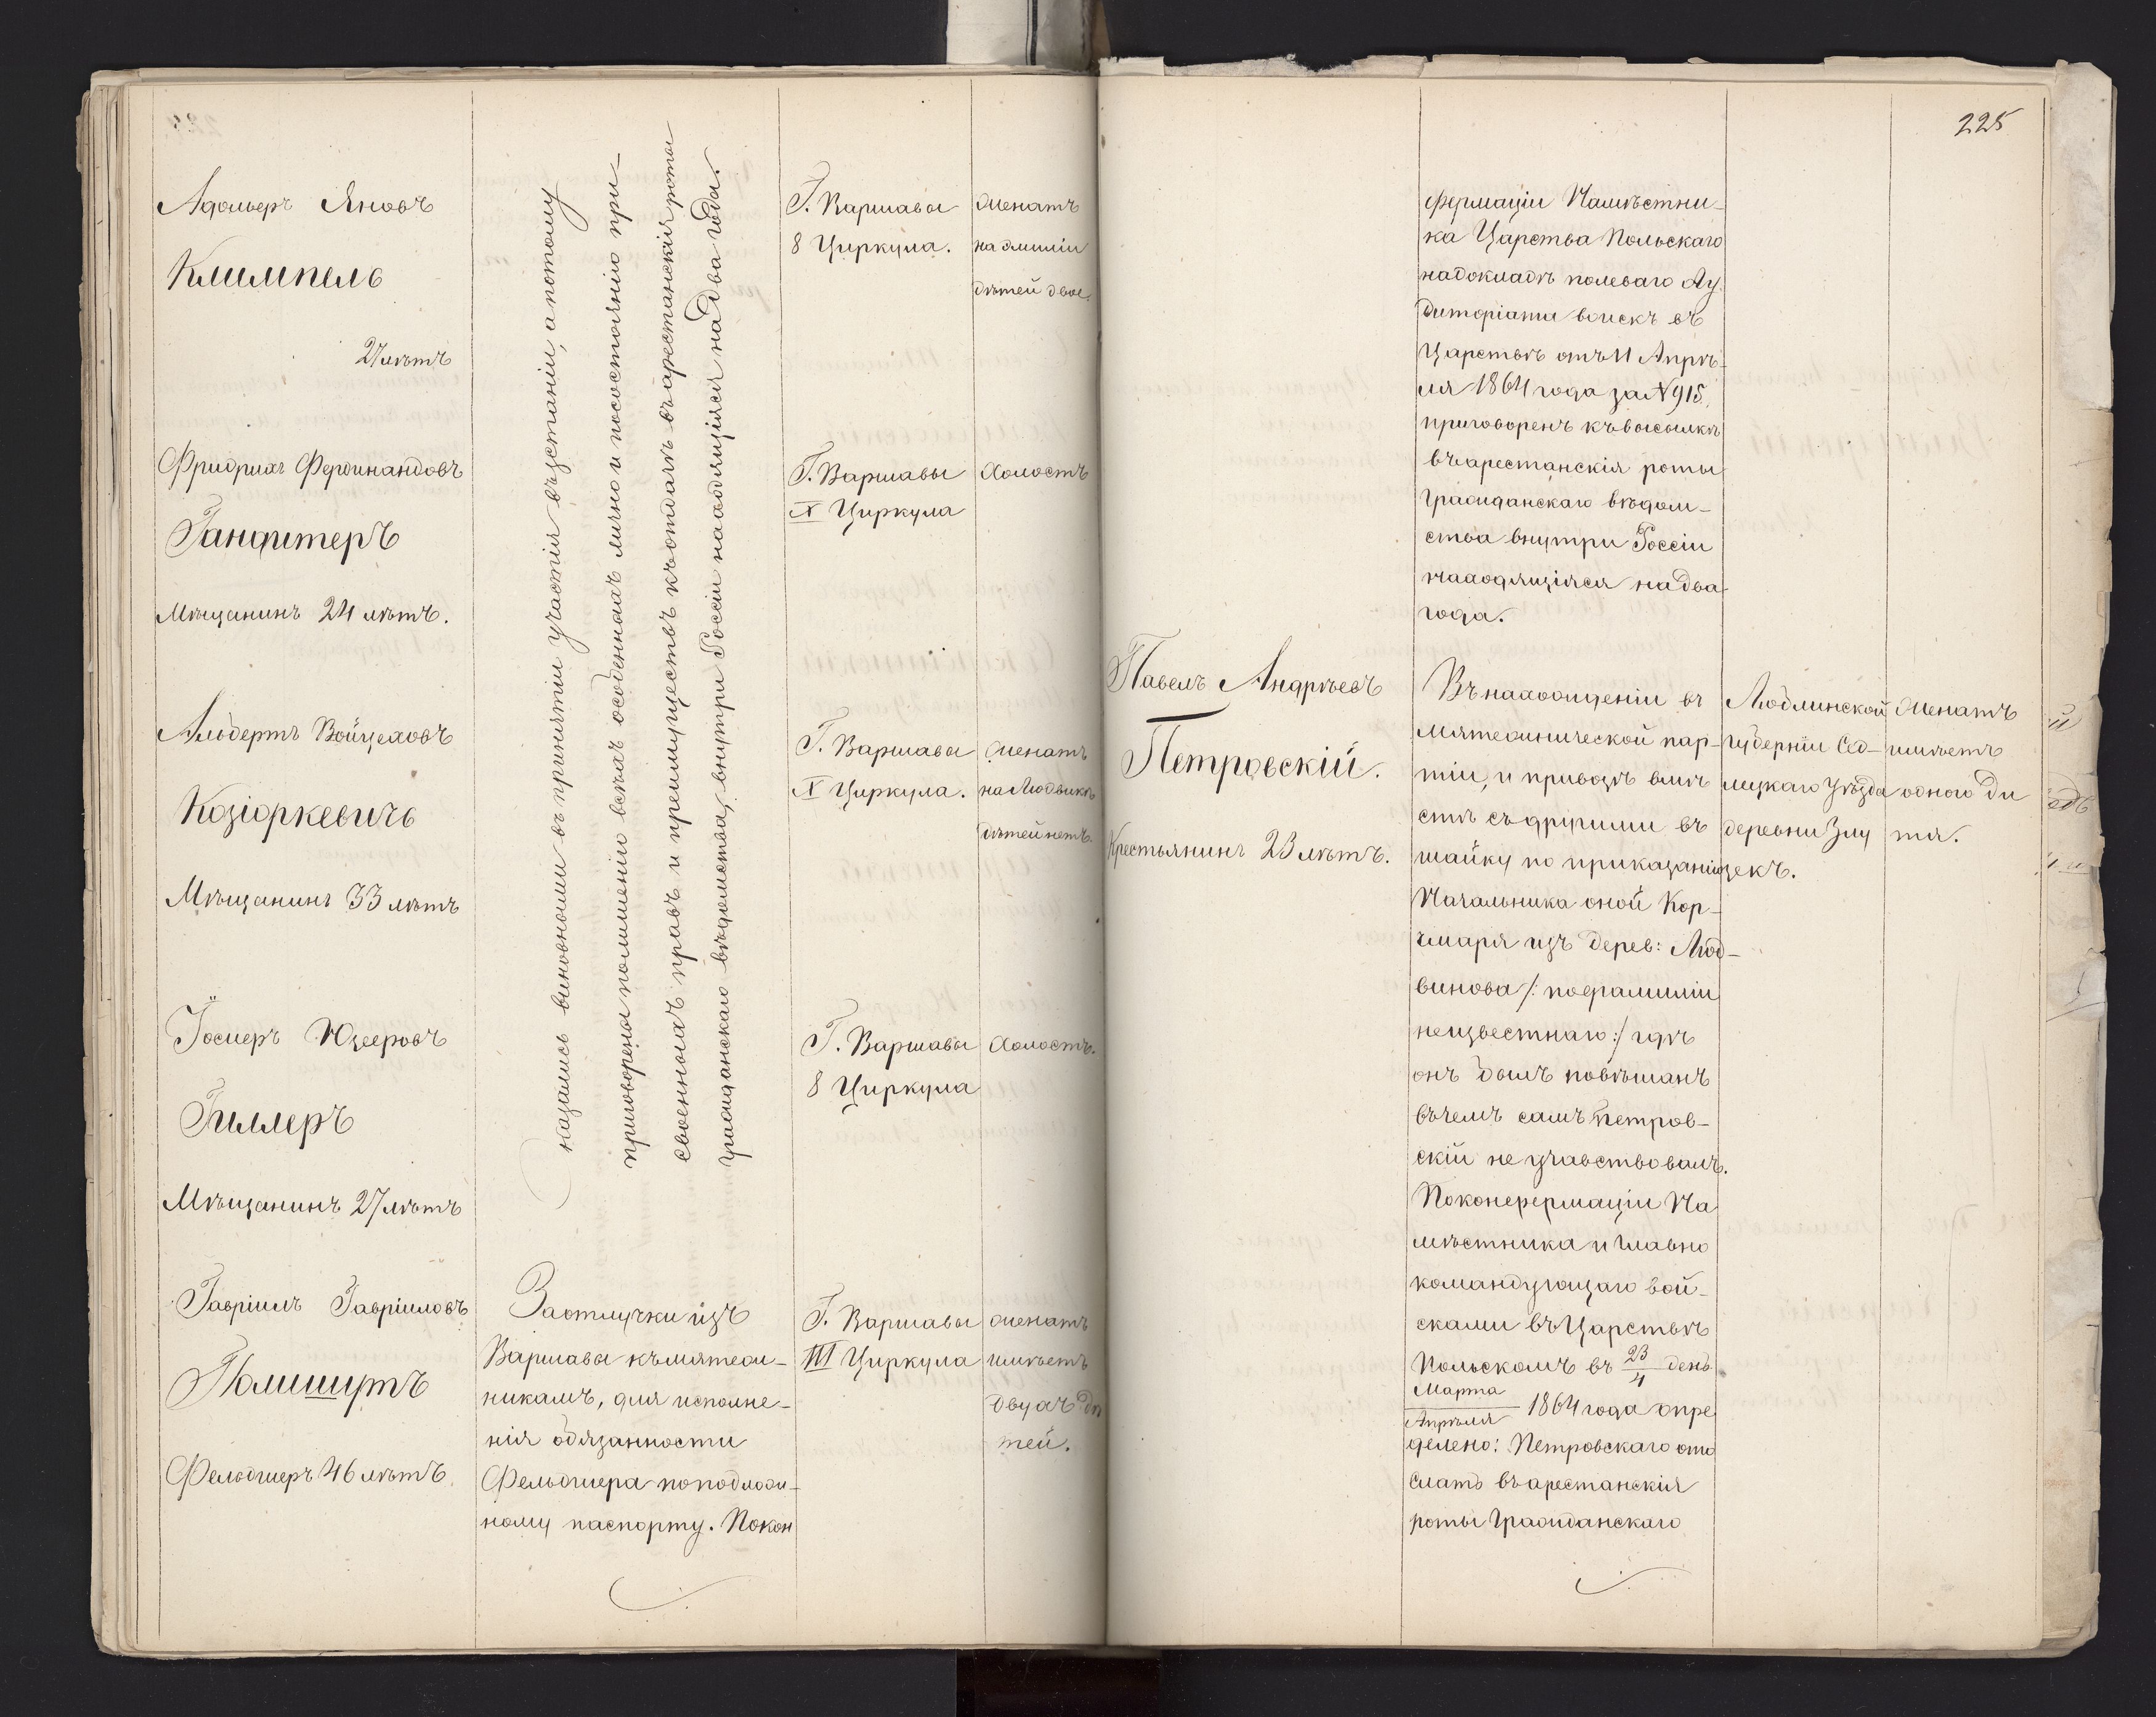 Адольеръ Яновъ
Климпель
27 лѣтъ
Фридрихъ Фердинандовъ
Гандитеръ
Мѣщанинъ 24 лѣтъ.
Альбертъ Войцеховъ
Козіоркевичь
Мѣщанинъ 33 лѣтъ
Іосиеръ Юзееровъ
Гиллеръ
Мѣщанинъ 27 лѣтъ
Гавріилъ Гавріиловъ
Полишутъ
Фельдшеръ 46 лѣтъ.
казались виновными въ принятіи участія възстаніи, а потому
приговорены полишенію всѣхъ особенныхъ лично и посостоянію при-
своенныхъ правъ и преимуществъ къотдачѣ въ арестанскія роты
гражданскаго вѣдомства, внутри Россіи находящіяся на два года.
Заотлучки изъ
Варшавы къмятеж-
никамъ, для исполне-
нія обязанности
Фельдшера поподлож-
ному паспорту. Покон
Г. Варшавы
8 Циркула.
Г. Варшавы
X Циркула
Г. Варшавы
X Циркула.
Г. Варшавы
8 Циркула
Г. Варшавы
III Циркула
женатъ
на Эмиліи
дѣтей двое.
холостъ
женатъ
на Людвикѣ
дѣтей нетъ.
холостъ.
женатъ
имѣетъ
двухъ дѣ
тей.
225
фермаціи Намѣстни-
ка Царства Польскаго
надокладѣ полеваго Ау
диторіата воискъ въ
Царствѣ отъ 11 Апрѣ-
ля 1864 года за № 915,
приговоренъ къвысылкѣ
въарестанскія роты
гражданскаго вѣдом-
ства внутри Россіи
находящіяся на два
года.
Павелъ Андрѣевъ
Петровскій.
Крестьянинъ 23 лѣтъ.
Въ нахожденіи въ
мятежнической пар-
тіи, и привозѣ вмѣ
стѣ съ другими въ
шайку по приказанію
Начальника оной Кор-
чмаря изъ дерев: Люд-
винова /: пофамиліи
неизвестнаго :/ гдѣ
онъ былъ повѣшанъ
въчемъ самъ Петров-
скій не учавствовалъ.
Поконфермаціи На
мѣстника и Главно
командующаго вой-
сками въ Царствѣ
Польскомъ въ 23/4 день
Марта/Апрѣля 1864 года опре
делено: Петровскаго отo
слать въарестанскія
роты Гражданскаго
Люблинской
губерніи Сѣд-
лецкаго Уѣзда
деревни Злу
зекъ.
женатъ
имѣетъ
одного ди
тя.